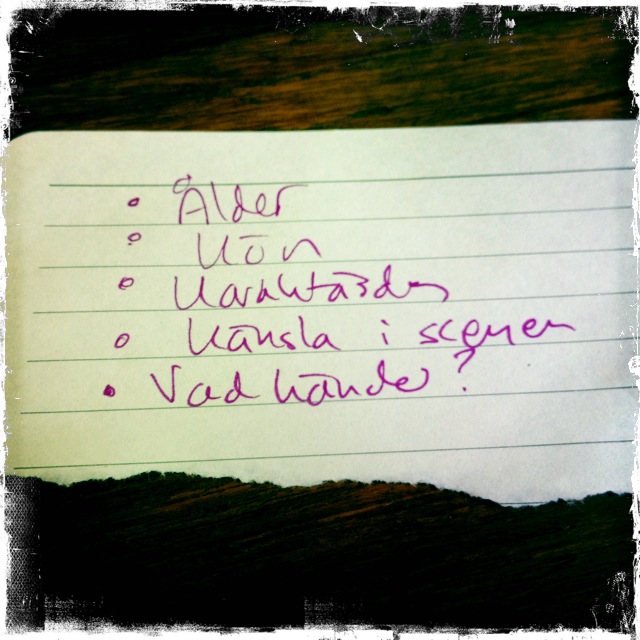 • Ålder
• Kön
• Känsla i scenen
• Vad händer?